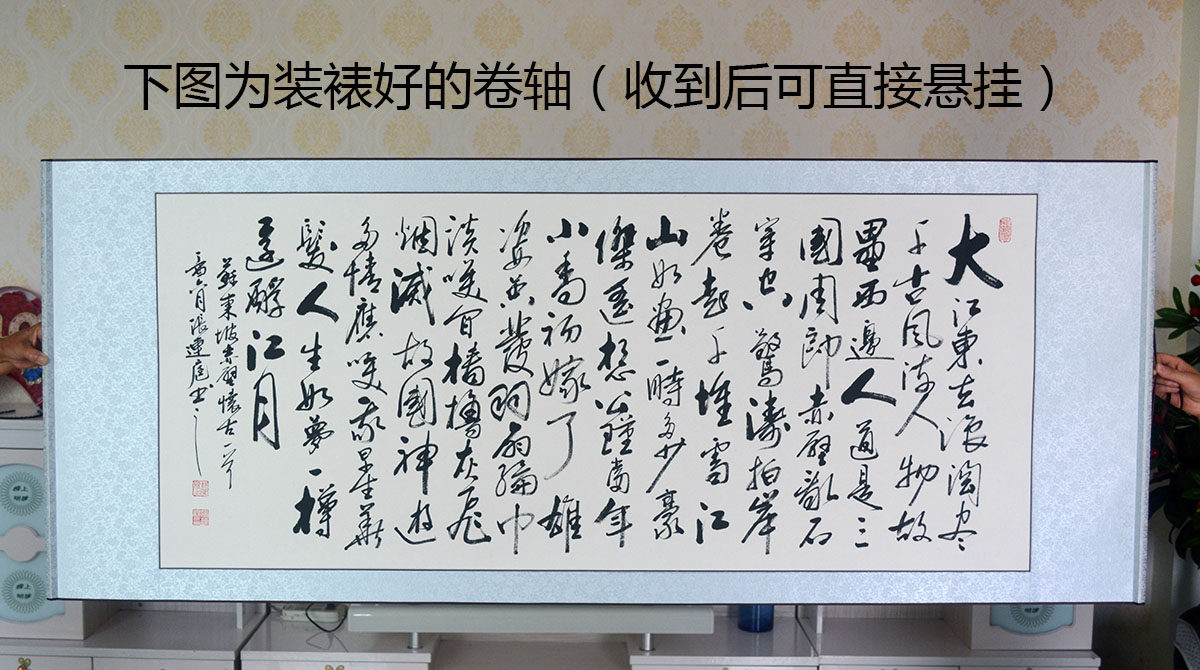 下图为装裱好的卷轴（收到后可直接悬挂）
大江東去浪淘尽
千古風流人物故
壘西邊人道是三
國周郎赤壁亂石
穿空驚濤拍岸
卷起千堆雪江
山如畫一時多少豪
傑遥想公瑾當年
小喬初嫁了雄
姿英發羽扇綸巾
淡咲间檣櫓灰飛
烟滅故國神遊
多情應咲我早生華
髮人生如夢一樽
還酹江月
蘇東坡赤壁懷古一首
月張運庭书